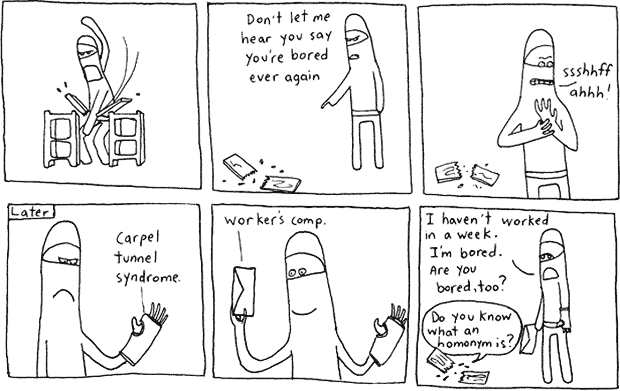 Don't let me
hear you say
you're bored
ever again
ssshhff
ahhh!
Later
Carpel
tunnel
syndrome.
Worker's comp.
I haven't worked
in a week.
I'm bored.
Are you
bored, too?
Do you know
what an
homonym is?